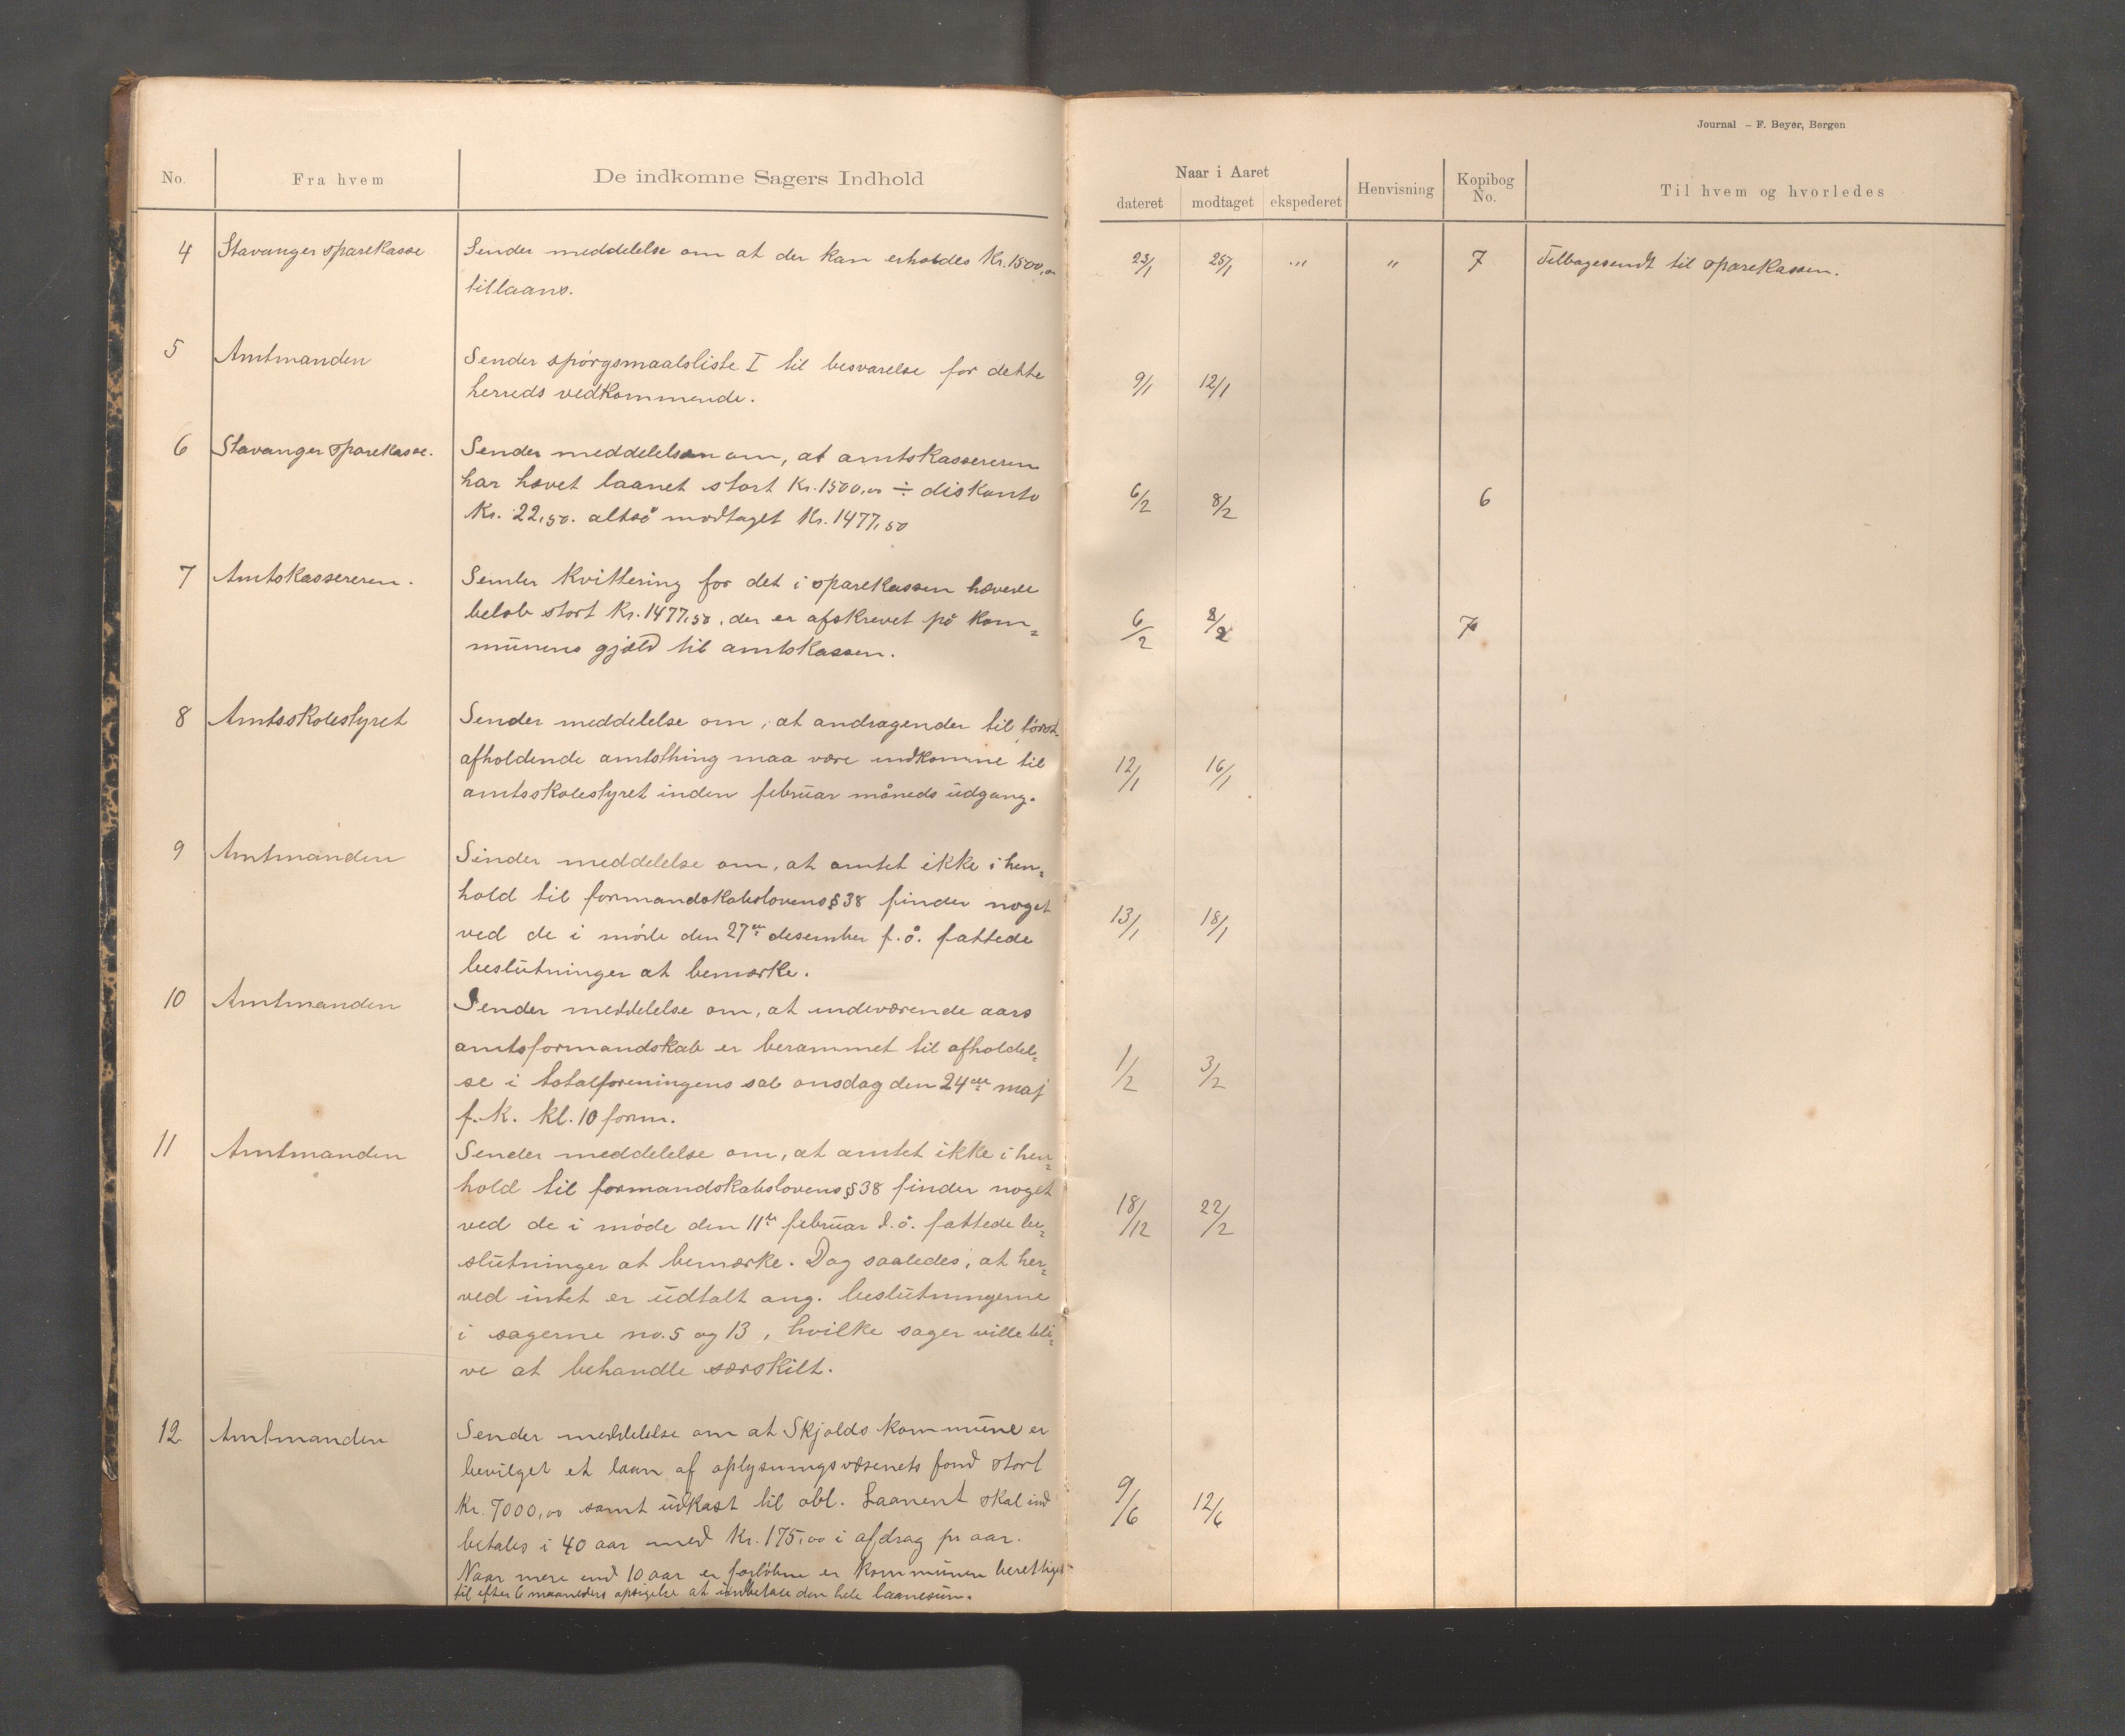 Journal – F. Beyer, Bergen
No. Fra hvem De indkomne Sagers Indhold
Naar i Aaret
dateret modtaget ekspederet Henvisning Kopibog No. Til hvem og hvorledes
4 Stavanger sparekasse Sender meddelelse om at der kan erholdes Kr. 1500,00 23/1 25/1 " " 7 Tilbagesendt til sparekassen.
tillaans.
5 Amtmanden Sender spørgsmaalsliste I til besvarelse for dette
herreds vedkommende. 9/1 12/1
6 Stavanger sparekasse. Sender meddelelse om, at amtskassereren
har hævet laanet stort Kr. 1500,00 ÷ diskonto 6/2 8/2 6
Kr. 22,50. altså modtaget Kr. 1477,50
7 Amtskassereren. Sender kvittering for det i sparekassen hævede
beløb stort Kr. 1477,50, der er afskrevet på kom= 6/2 8/2 7
munens gjæld til amtskassen.
8 Amtsskolestyret Sender meddelelse om, at andragender til først
afholdende amtsthing maa være indkomne til 12/1 16/1
amtsskolestyret inden februar måneds udgang.
9 Amtmanden Sender meddelelse om, at amtet ikke i hen=
hold til formandskabslovens § 38 finder noget 13/1 18/1
ved de i møde den 27de desember f. å. fattede
beslutninger at bemærke.
10 Amtmanden Sender meddelelse om, at indeværende aars
amtsformandskab er berammet til afholdel= 1/2 3/2
se i totalforeningens sal onsdag den 24de maj
f. k. kl. 10 form.
11 Amtmanden Sender meddelelse om, at amtet ikke i hen=
hold til formandskabslovens § 38 finder noget 18/12 22/2
ved de i møde den 11te februar d. å. fattede be=
slutninger at bemærke. Dog saaledes, at her=
ved intet er udtalt ang. beslutningerne
i sagerne no. 5 og 13, hvilke sager ville bli=
ve at behandle særskilt.
12 Amtmanden Sender meddelelse om at Skjolds kommune er
bevilget et laan af oplysningsvæsenets fond stort
Kr. 7000,00 samt udkast til obl. Laanent skal ind 9/6 12/6
betales i 40 aar med Kr. 175,00 i afdrag pr aar.
Naar mere end 10 aar er forløbne er kommunen berettiget
til efter 6 maaneders opsigelse at indbetale den hele laanesum.